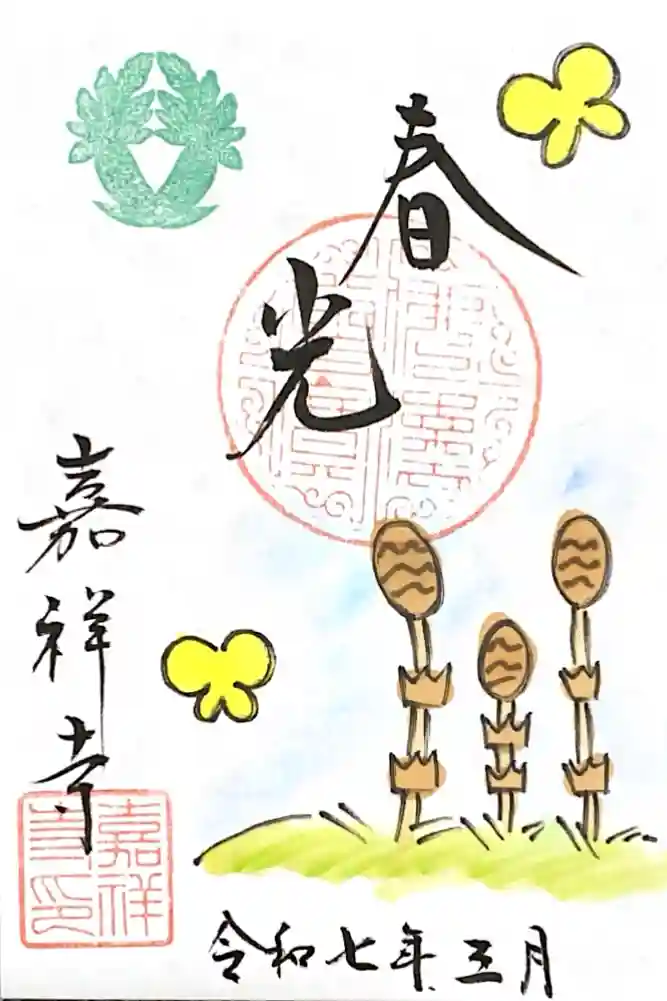 春光
嘉祥寺
嘉祥
寺印
令和七年三月